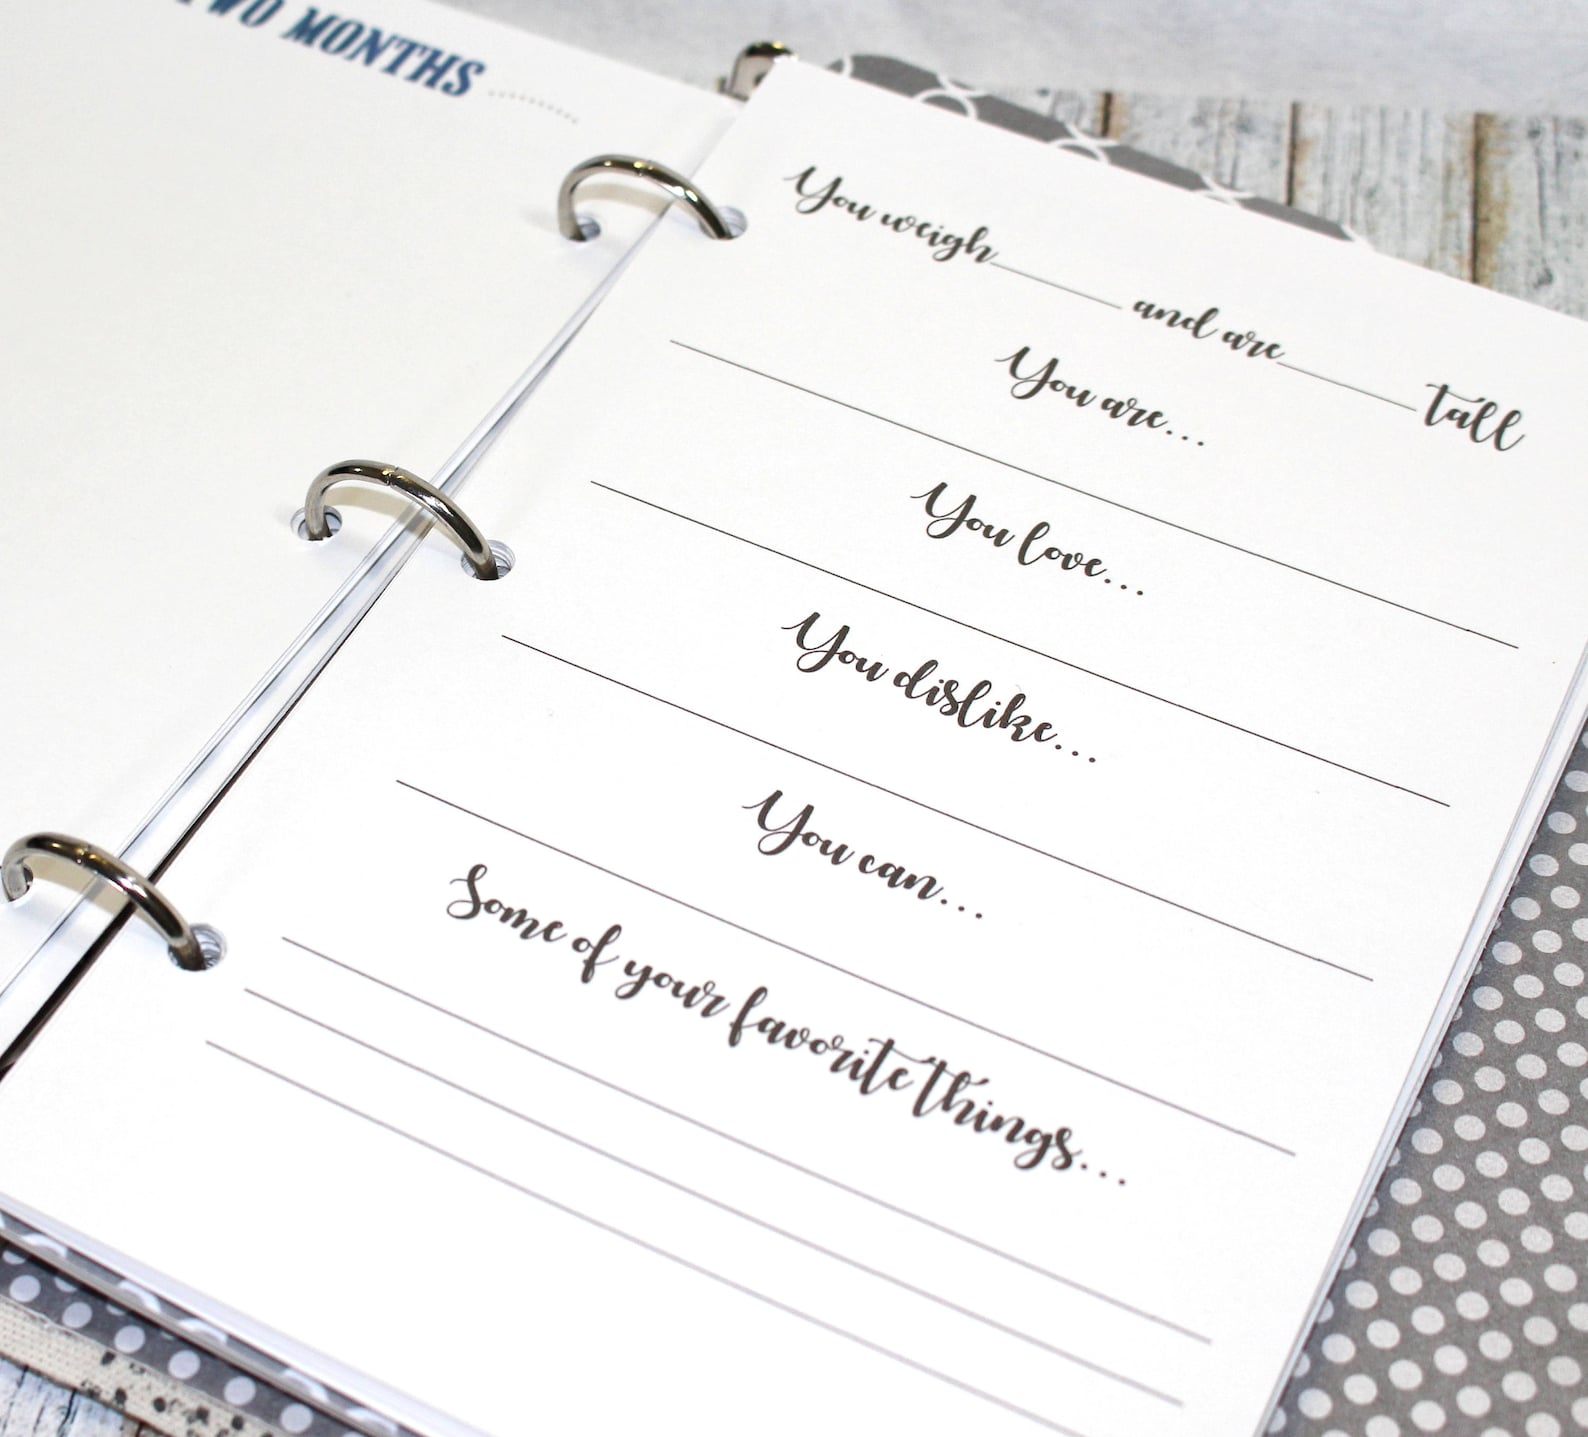 TWO MONTHS
You weigh______ and are______ tall
You are...
You love...
You dislike...
You can...
Some of your favorite things...